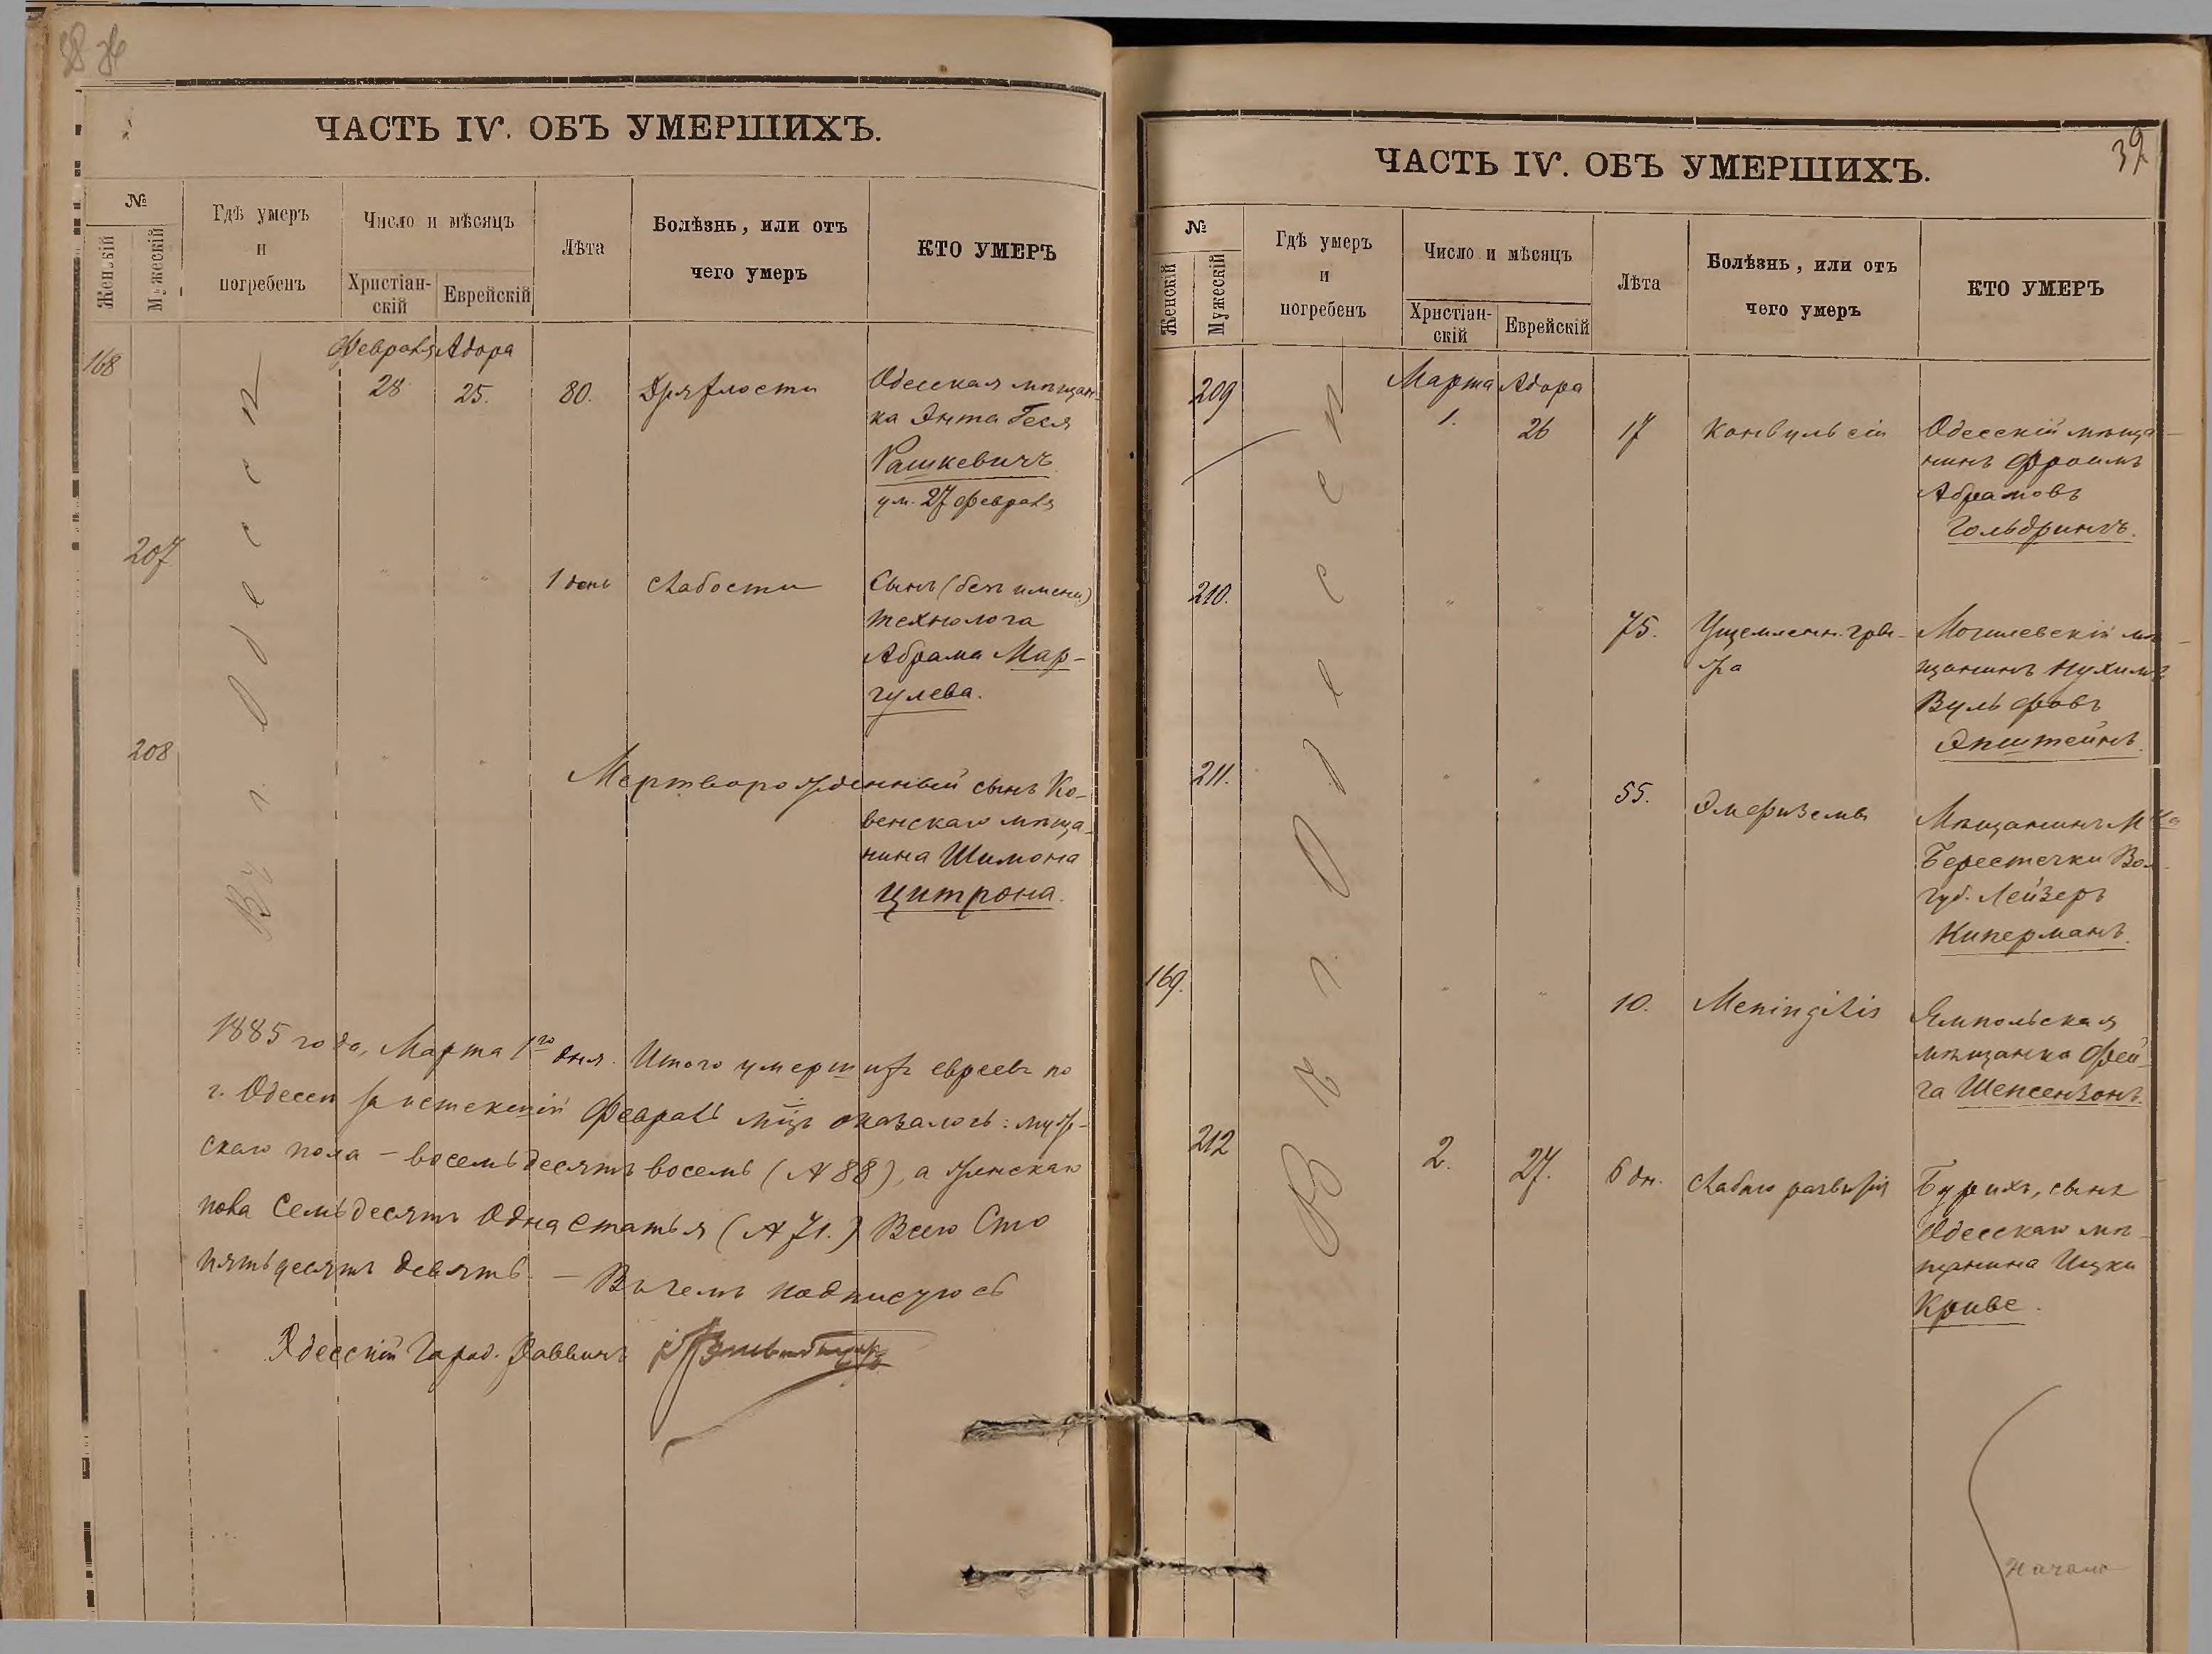 ЧАСТЬ IV. ОБЪ УМЕРШИХЪ.
№
Женскій
Мужескій
Гдѣ умеръ
и
погребенъ
Число и мѣсяцъ
Христіан-
скій
Еврейскій
Лѣта
Болѣзнь, или отъ
чего умеръ
КТО УМЕРЪ
Въ г. Одессѣ
Февраля Адора
168
28 25. 80. Дряхлости Одесская мѣщан-
ка Энта Геся
Рашкевичъ
ум. 27 февраля
207
" " 1 день Слабости Сынъ (безъ имени)
технолога
Абрама Мар-
гулева.
208
" " Мертворожденный сынъ Ко-
венскаго мѣща-
нина Шимона
Цитрона.
1885 года, Марта 1го дня. Итого умершихъ евреевъ по
г. Одессѣ за истекшій Февраль мцъ оказалось: муж-
скаго пола – восемьдесятъ восемь (№ 88), а женскаго
пола Семьдесятъ Одна Статья (№ 71.) Всего Сто
пятьдесятъ девять. – Въ чемъ подписуюсь
Одесскій Город. Раввинъ
39
ЧАСТЬ IV. ОБЪ УМЕРШИХЪ.
№
Женскій
Мужескій
Гдѣ умеръ
и
погребенъ
Число и мѣсяцъ
Христіан-
скій
Еврейскій
Лѣта
Болѣзнь, или отъ
чего умеръ
КТО УМЕРЪ
Въ г. Одессѣ
Марта Адора
209
1. 26 17 Конвульсіи Одесскій мѣща-
нинъ Фроимъ
Абрамовъ
Гольдрингъ.
210.
" " 75. Ущемленн. гры-
жа
Могилевскій мѣ-
щанинъ Нухимъ
Вульфовъ
Эпштейнъ.
211.
" " 55. Эмфиземы Мѣщанинъ М-ка
Берестечки Вол.
губ. Лейзеръ
Киперманъ.
169.
" " 10. Meningitis Ямпольская
мѣщанка Фей-
га Шепсензонъ.
212
2. 27. 6 дн. Слабаго развитія Бурихъ, сынъ
Одесскаго мѣ-
щанина Ицки
Криве.
Начало